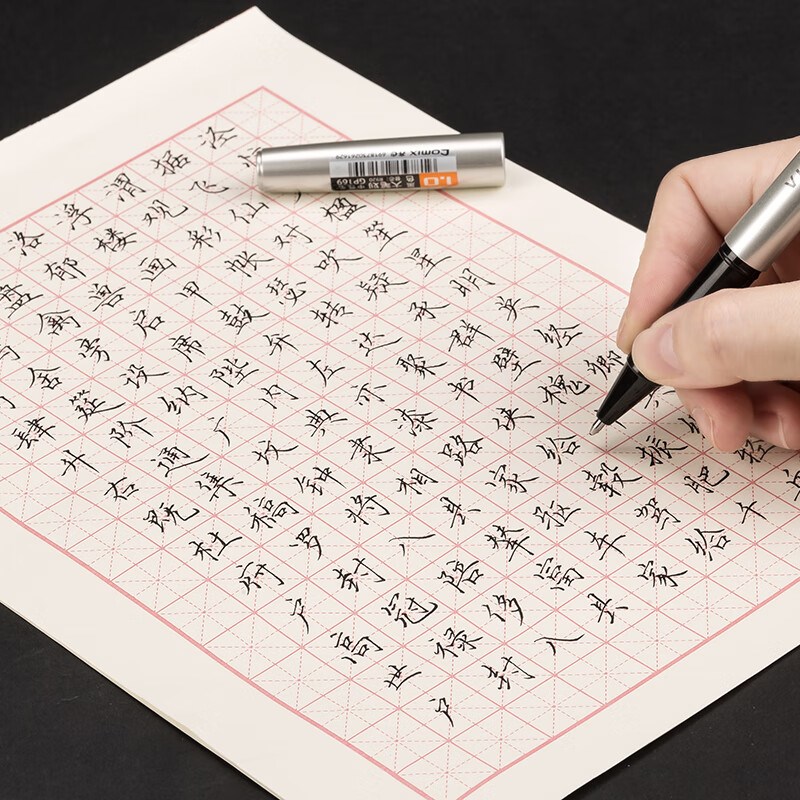 洛浮渭据泾
盘郁楼观飞
禽兽画彩仙
舍旁启甲帐对楹
肆筵设席鼓瑟吹笙
升阶纳陛弁转疑星
右通广内左达承明
既集坟典亦聚群英
杜稿钟隶漆书壁经
府罗将相路侠槐卿
户封八县家给
高冠陪辇驱毂振
世禄侈富车驾肥轻
户封八县家给千
Comix 齐心
GP169
1.0